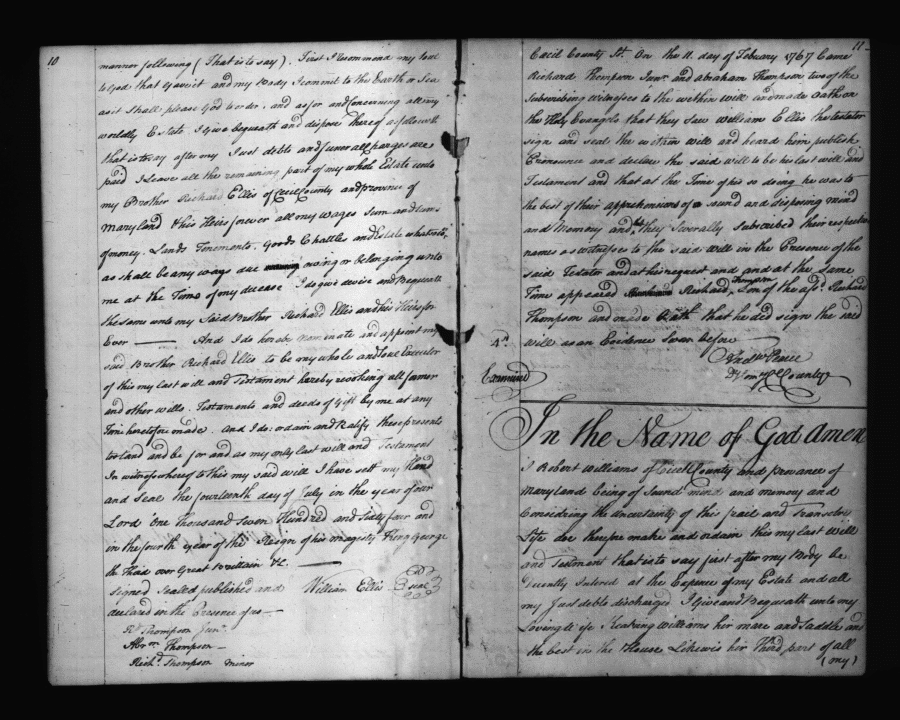 10
manner following (That is to say). First I recommend my soul
to God that gave it and my Body I commit to the Earth or Sea
as it shall please God to order. and as for and Concerning all my
worldly Estate I Give bequeath and dispose thereof as followeth
that is to say after my Just debts and funerall charges are
paid I Leave all the remaining part of my whole Estate unto
my Brother Richard Ellis of Cecil County and province of
Maryland & his Heirs forever all my wages Sum and Sums
of money. Lands Tenements. Goods Chattles and Estate whatsoever
as shall be any ways due owing or belonging unto
me at the Time of my decease I do give devise and Bequeath
the same unto my Said Brother Richard Ellis and his Heirs for
Ever — And I do hereby nominate and appoint my
said Brother Richard Ellis to be my whole and sole Executor
of this my last will and Testament hereby revoking all former
and other wills. Testaments and deeds of Gift by me at any
Time heretofore made. And I do ordain and Ratify these presents
to stand and be for and as my only last will and Testament
In witness whereof to this my said will I have sett my Hand
and Seal the fourteenth day of July in the year of our
Lord One thousand Seven Hundred and Sixty four and
in the fourth year of the Reign of his Magesty King George
the Third over Great Brittain &c. —
Signed Sealed published and William Ellis Seal
declared in the Presence of us —
Rd Thompson Junr.
Abrm Thompson —
Richd. Thompson minor
11
Cecil County St. On the 11. day of February 1767 Came
Richard Thompson Junr. and Abraham Thompson two of the
Subscribing witnesses to the within will and made Oath on
the Holy Evangels that they saw William Ellis the testator
sign and seal the within will and heard him publish
Pronounce and declare the said will to be his last will and
Testament and that at the Time of his so doing he was to
the best of their apprehensions of a sound and disposing mind
and Memory and that they Severally Subscribed their respective
names as witnesses to the said will in the Presence of the
said Testator and at his request and and at the same
Time appeared Richard Thompson Son of the afsd. Richard
Thompson and made Oath that he did sign the said
will as an Evidence Sworn before
Examined
D Comry C County
In the Name of God Amen
I Robert Williams of Cecil County and Provance of
Maryland being of Sound mind and memory and
Considering the uncertainty of this frail and Transitory
Life doe therefore make and ordain this my last Will
and Testment that is to say first after my Body be
Decently Intered at the Expence of my Estate and all
my Just debts discharged I Give and Bequeath unto my
Loving Wife Williams her mare and Saddle and
the best in the House Likewis her Third part of all
(my)